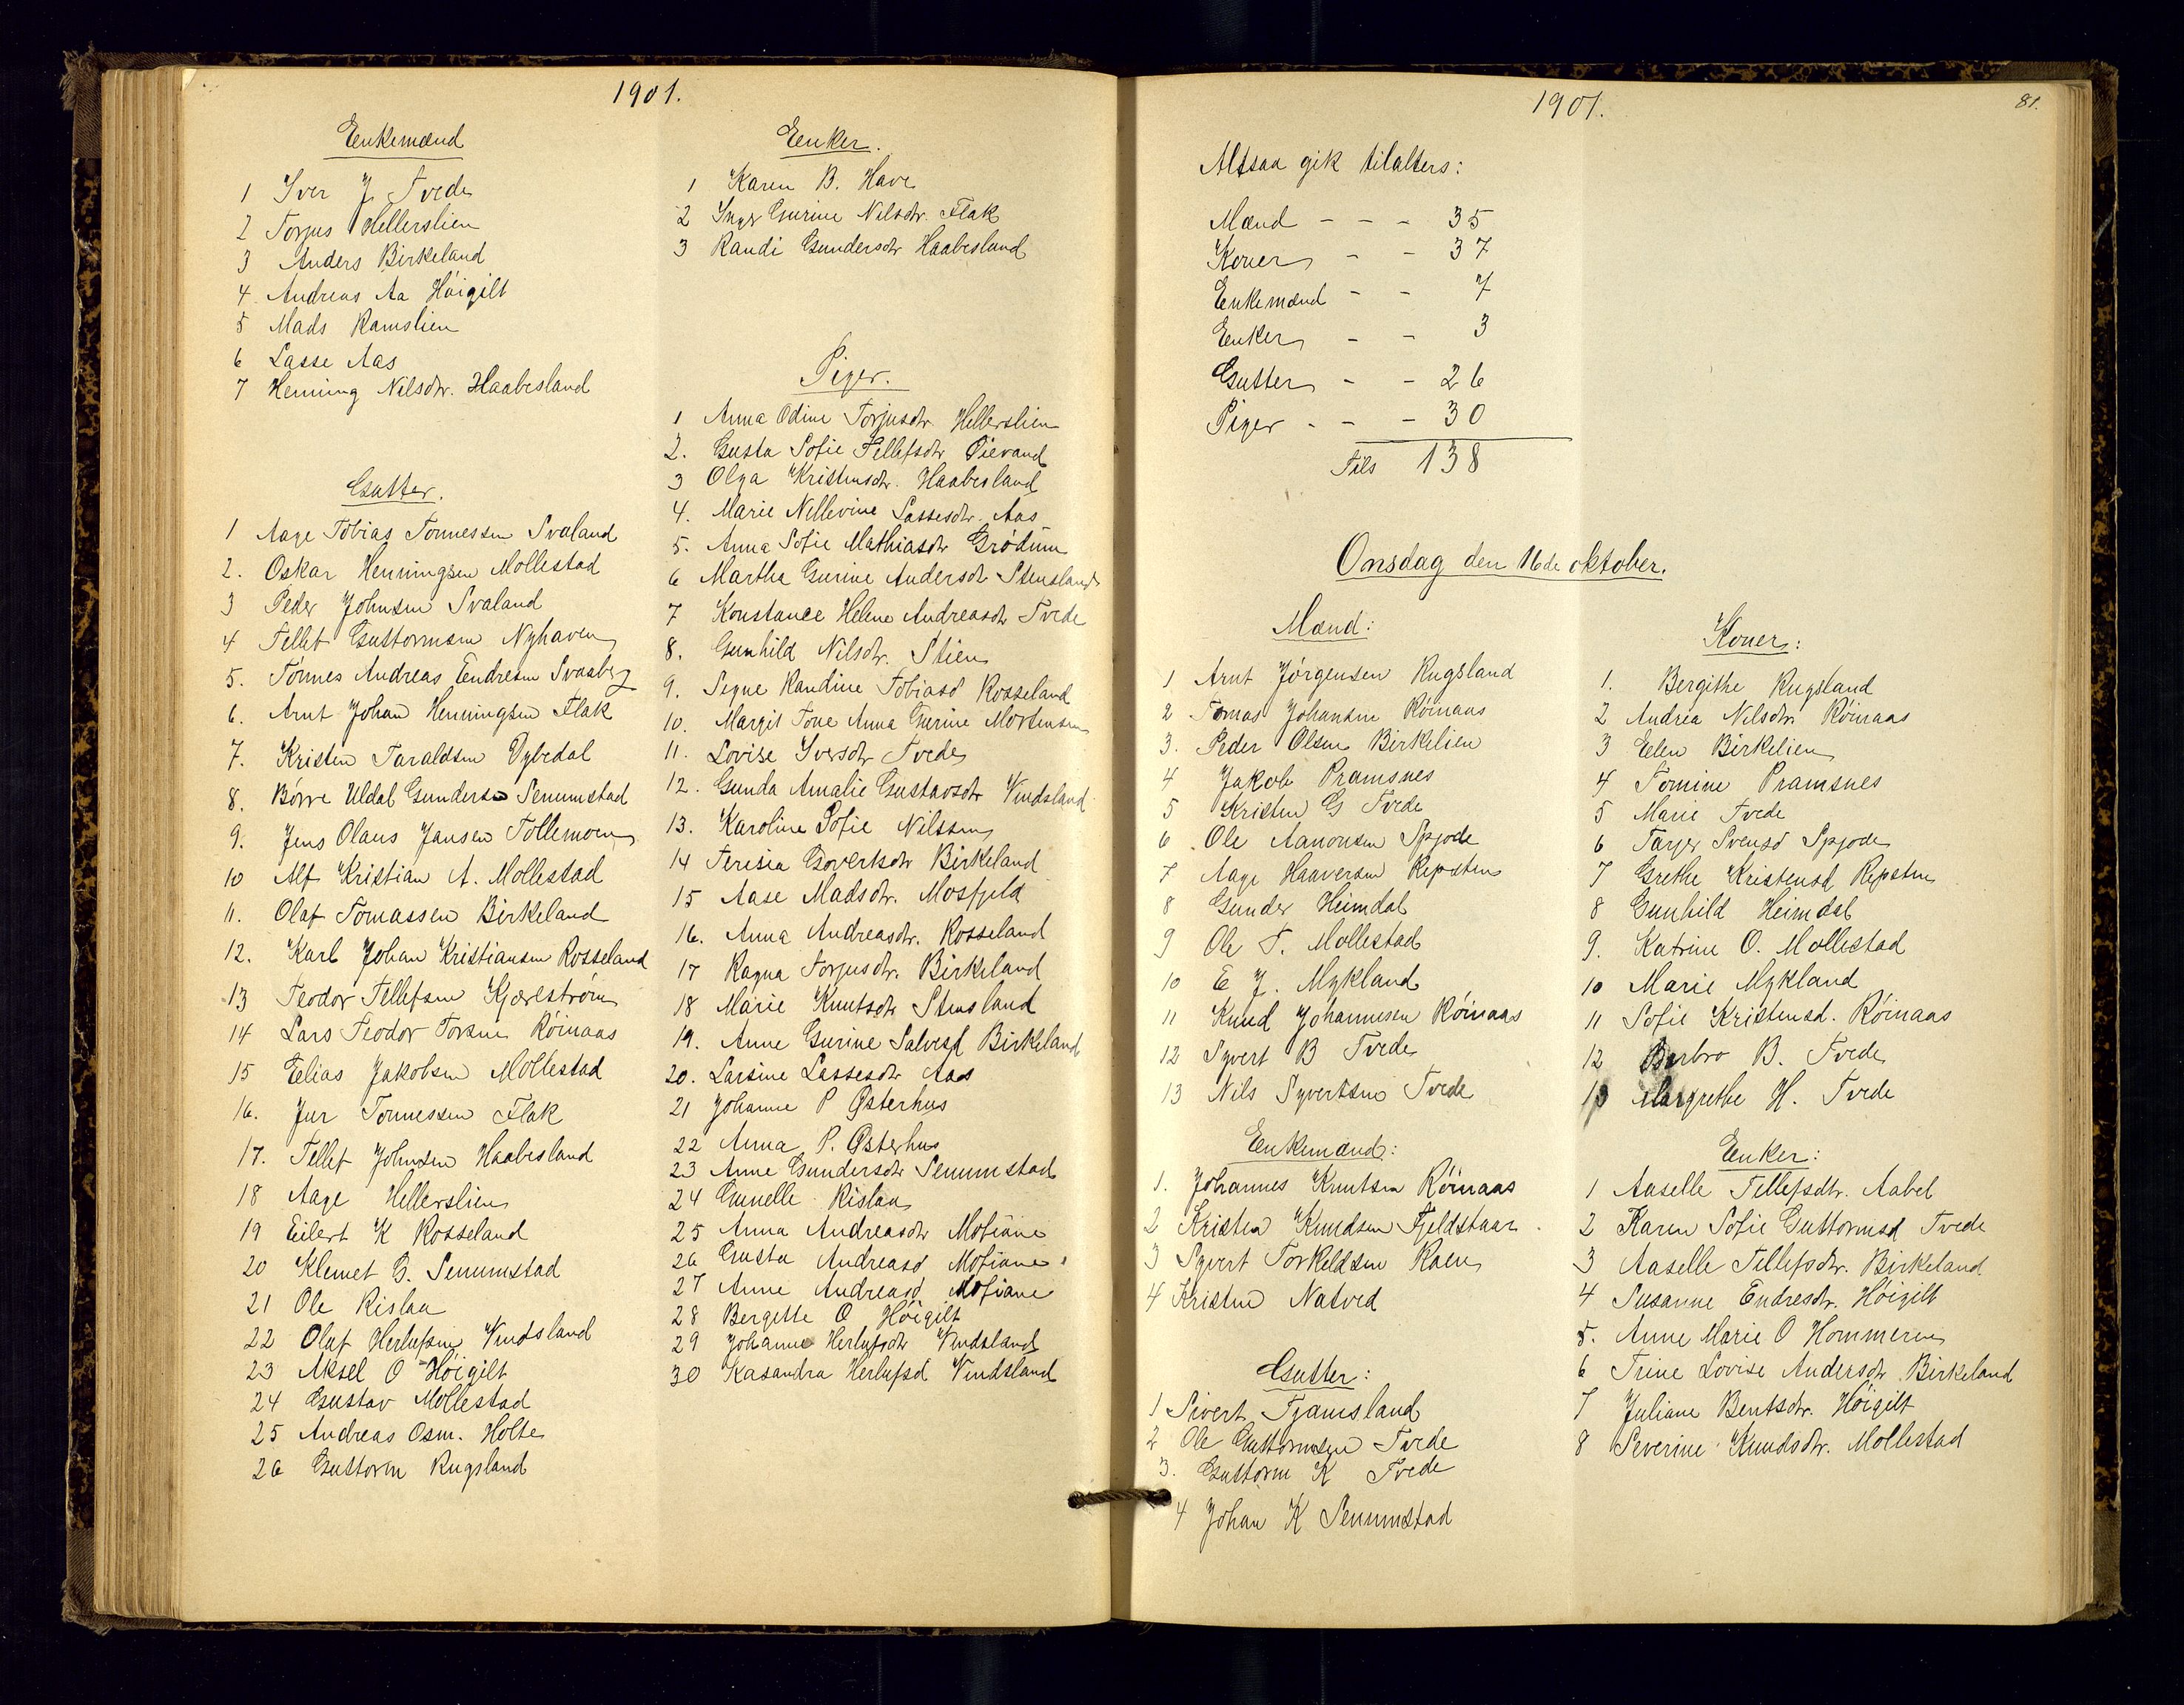 1901.
Enkemænd
1 Iver J. Tvede
2 Torjus Hellerslien
3 Anders Birkeland
4. Andreas Aa Höigilt
5 Mads Ramslien
6 Lasse Aas
7 Henning Nilsdtr. Haabesland
Gutter.
1 Aage Tobias Tönnessen Svaland
2. Oskar Henningsen Mollestad
3 Peder Johnsen Svaland
4 Tellef Guttormsen Nyhaven
5. Tönnes Andreas Endresen Svaberg
6. Arnt Johan Henningsen Flak
7. Kristen Taraldsen Dybedal
8. Börre Uldal Gunderse Senumstad
9. Jens Olaus Jansen Tollemoen
10 Alf Kristian A. Mollestad
11. Olaf Tomassen Birkeland
12. Karl Johan Kristiansen Rosseland
13 Teodor Tellefsen Kjærlström
14 Lars Teodor Torsen Röinaas
15 Elias Jakobsen Mollestad
16. Jur Tönnessen Flak
17. Tellef Johnsen Haabesland
18 Aage Hellerslien
19 Eilert K Rosseland
20 Klemet G. Senumstad
21 Ole Rislaa
22 Olaf Herlufsen Vindsland
23 Aksel O Höigilt
24 Gustav Mollestad
25 Andreas Osm. Holte
26 Guttorm Rugsland
Enker.
1 Karen B. Have
2 Inger Gurine Nilsdtr. Flak
3 Randi Gundersdtr Haabesland
Piger.
1 Anna Odine Torjusdtr. Hellerslien
2. Gusta Sofie Tellefsdtr Öievand
3 Olga Kristensdtr. Haabesland
4. Marie Nellevine Lassesdtr. Aas
5. Anna Sofie Mathiasdtr Grödum
6 Marthe Gurine Andersdtr Stensland
7 Konstance Helene Andreasdtr Tvede
8. Gunhild Nilsdtr. Stien
9. Signe Randine Tobiasd Rosseland
10. Margit Tone Anna Gurine Mortensen
11. Lovise Iversdtr Tvede
12. Gunda Amalie Gustavsdtr Vindsland
13. Karoline Sofie Nilssen
14 Teresia Govertsdtr Birkeland
15 Aase Madsdtr. Mosfjeld
16. Anna Andreasdtr. Rosseland
17 Ragna Torjusdtr. Birkeland
18 Marie Knutsdtr Stensland
19. Anne Gurine Salvesd Birkeland
20. Larsine Lassesdtr Aas
21 Johanne P Østerhus
22 Anna P. Østerhus
23 Anne Gundersdtr Senumstad
24 Gunelle Rislaa
25 Anna Andreasdtr Mofiane
26 Gusta Andreasd Mofiane
27 Anne Andreasd Mofiane
28 Bergitte O Höigilt
29 Johanne Herlufsdtr Vindsland
30 Kasandra Herlufsd Vindsland
1901.
81.
Altsaa gik tilalters:
Mænd - - - 35
Koner - - 37
Enkemænd - - 7
Enker - - 3
Gutter - - 26
Piger - - - 30
Tils 138
Onsdag den 16de oktober.
Mænd:
1 Arnt Jörgensen Rugsland
2 Tomas Johansen Röinaas
3. Peder Olsen Birkelien
4 Jakob Pramsnes
5 Kristen G Tvede
6 Ole Aanonsen Spjode
7 Aage Haaversen Repsten
8 Gunder Heimdal
9 Ole T. Mollestad
10 E J. Mykland
11 Knud Johannesen Röinaas
12 Syvert B Tvede
13 Nils Syvertsen Tvede
Enkemænd:
1. Johannes Knutsen Röinaas
2 Kristen Knudsen Fjeldstaar
3 Syvert Torkeldsen Raen
4 Kristen Natved
Gutter:
1 Sivert Tjamsland
2 Ole Guttormsen Tvede
3. Guttorm K Tvede
4 Johan K Senumstad
Koner:
1. Bergithe Rugsland
2 Andrea Nilsdtr Röinaas
3 Elen Birkelien
4 Tomine Pramsnes
5 Marie Tvede
6 Tarjer Svensd Spjode
7 Grethe Kristensd Repsten
8 Gunhild Heimdal
9. Katrine O. Mollestad
10 Marie Mykland
11 Sofie Kristensd. Röinaas
12 Barbro B. Tvede
13 Margrethe H. Tvede
Enker:
1 Aaselle Tellefsdtr. Aabel
2 Karen Sofie Guttormsd Tvede
3 Aaselle Tellefsdtr. Birkeland
4 Susanne Endresdtr. Höigilt
5. Anne Marie O Hommeren
6 Trine Lovise Andersdtr Birkeland
7 Juliane Bentsdtr. Höigilt
8 Severine Knudsdtr. Mollestad